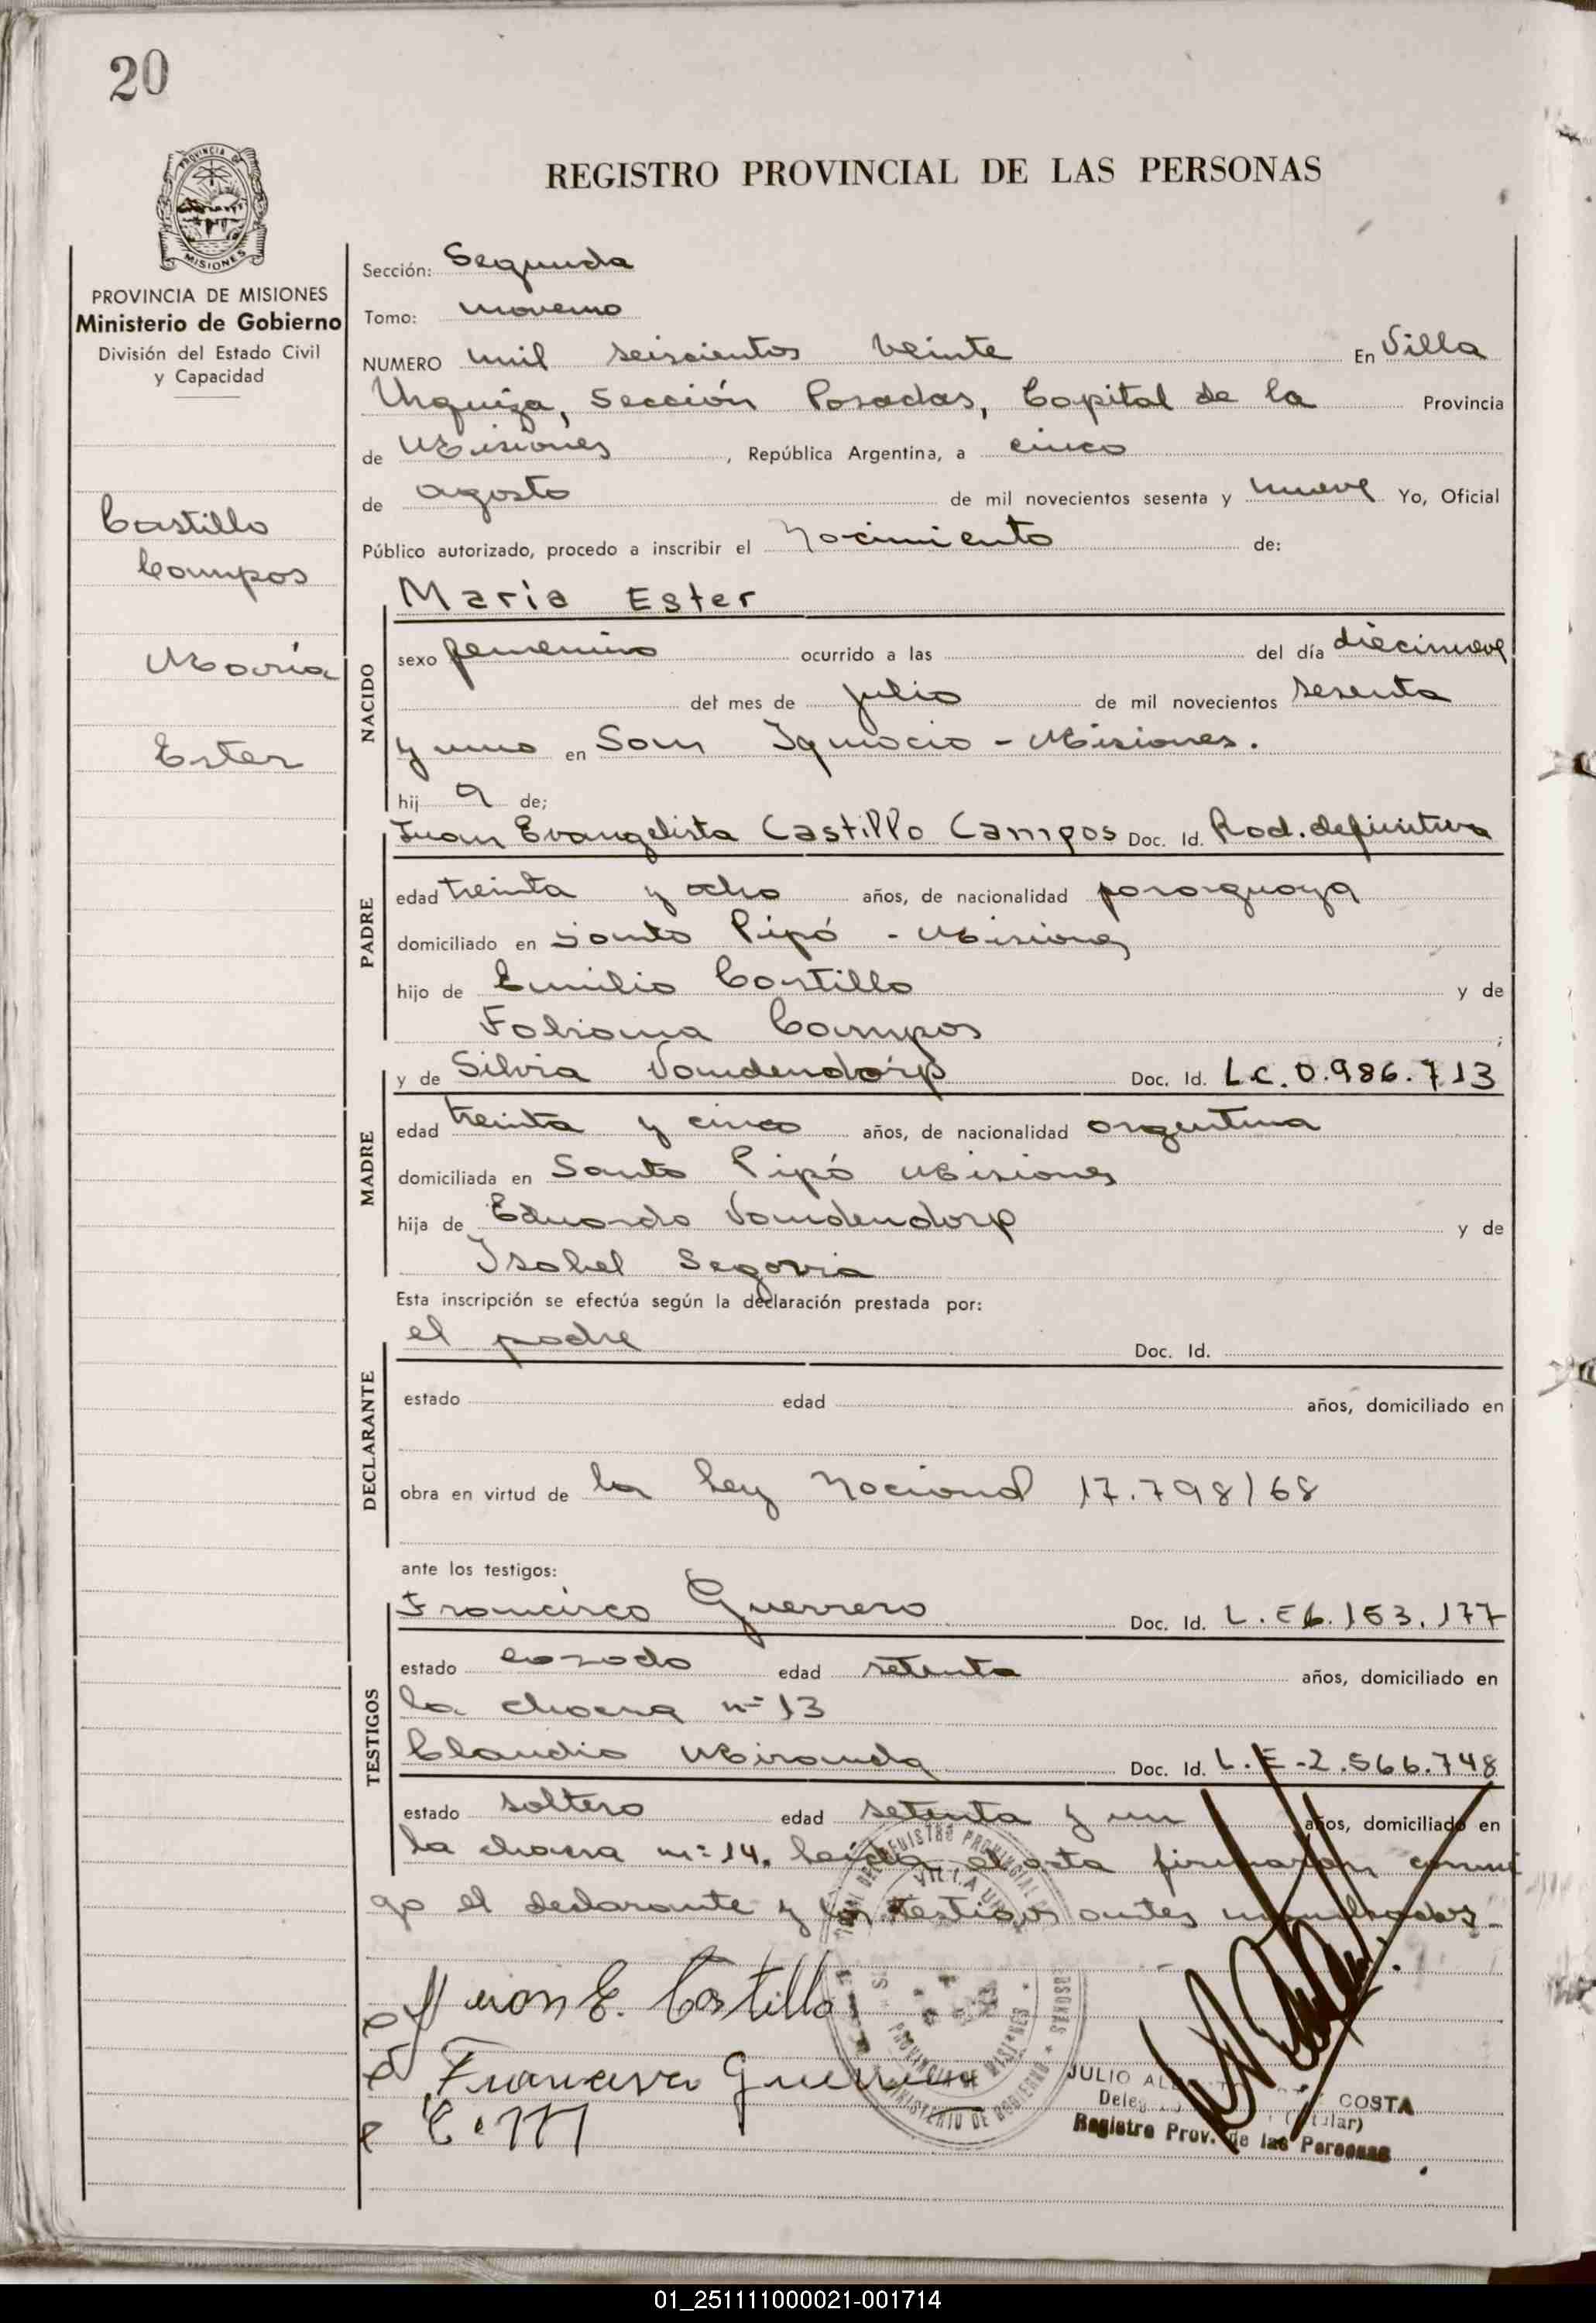 20
REGISTRO PROVINCIAL DE LAS PERSONAS
PROVINCIA DE
MISIONES
PROVINCIA DE MISIONES
Ministerio de Gobierno
División del Estado Civil
y Capacidad
Castillo
Campos
María
Ester
Sección: Segunda
Tomo: noveno
NUMERO mil seiscientos veinte En Villa
Urquiza, Sección Posadas, Capital de la Provincia
de Misiones, República Argentina, a cinco
de agosto de mil novecientos sesenta y nueve Yo, Oficial
Público autorizado, procedo a inscribir el Nacimiento de:
NACIDO
Maria Ester
sexo femenino ocurrido a las del día diecinueve
del mes de julio de mil novecientos sesenta
y uno en San Ignacio - Misiones.
hij a de;
PADRE
Juan Evangelista Castillo Campos Doc. Id. Rad. definitiva
edad treinta y ocho años, de nacionalidad paraguaya
domiciliado en Santo Pipó - Misiones
hijo de Emilio Castillo y de
Fabiana Campos ;
MADRE
y de Silvia Vandendorp Doc. Id. L.C. 0.986.713
edad treinta y cinco años, de nacionalidad argentina
domiciliada en Santo Pipó Misiones
hija de Eduardo Vandendorp y de
Isabel Segovia
Esta inscripción se efectúa según la declaración prestada por:
DECLARANTE
el padre Doc. Id.
estado edad años, domiciliado en
obra en virtud de la Ley Nacional 17.798/68
ante los testigos:
TESTIGOS
Francisco Guerrero Doc. Id. L.E 6.153.177
estado casado edad setenta años, domiciliado en
la chacra nº 13
Claudio Miranda Doc. Id. L.E-2.566.748
estado soltero edad setenta y un años, domiciliado en
la chacra nº 14. Leída el acta firmaron conmi
go el declarante y los testigos antes nombrados-
Juan E. Castillo
Francisco Guerrero
C. M
VILLA
PROVINCIA DE MISIONES
MINISTERIO DE GOBIERNO
JULIO COSTA
Registro Prov. de las Personas
01_251111000021-001714